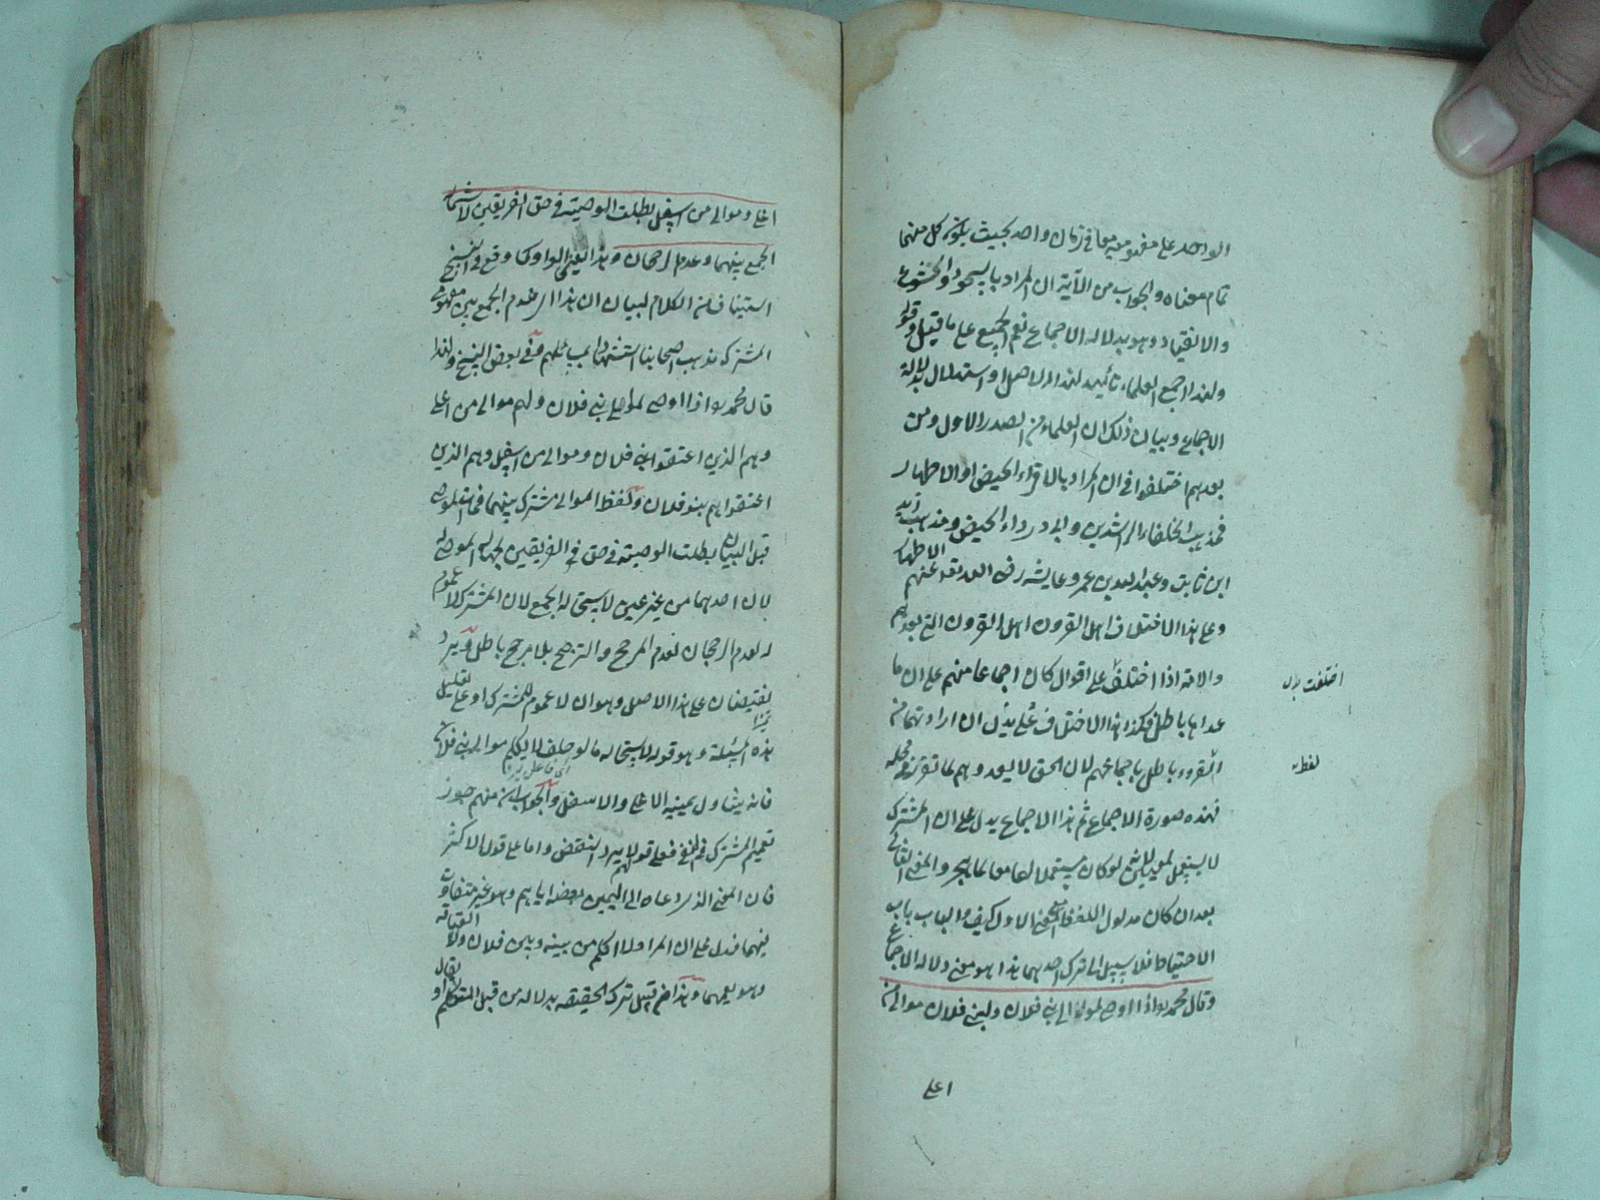 الواحد على مفهوميه معا في زمان واحد بحيث يكون كل منهما
تمام معناه والجواب من الآية ان المراد بالسجود الخشوع
والانقياد وهو بدلالة الاجماع نعم الجميع على ما قيل وقوله
ولهذا اجمع العلماء تأييد لهذا الاصل او استدلال بدلالة
الاجماع وبيان ذلك ان العلماء من الصدر الاول ومن
بعدهم اختلفوا في ان المراد بالاقراء الحيض او الاطهار
فمذهب الخلفاء الراشدين وابي درداء الحيض ومذهب زيد
ابن ثابت وعبد الله بن عمر وعايشة رضى الله تعالى عنهم الاطهار
وعلى هذا الاختلاف اهل القرون اهل القرون التي بعدهم
والامة اذا اختلفت على اقوال كان اجماعا منهم على ان ما
عداها باطل فكذا هذا الاختلاف فعلى هذا ان اراد تهما من
القروء باطل باجماعهم لان الحق لا يعدوهم لما تقرر في محله
فهذه صورة الاجماع ثم هذا الاجماع يدل على ان المشترك
لا يستعمل لمعنيين لو كان مستعملا لهما معا لما يهجر والمعنى الثاني
بعد ان كان مدلول اللفظ المعنى الاول كيف والباب باب
الاحتياط فلا سبيل الى ترك احدهما هذا هو معنى دلالة الاجماع
وقال محمد لو اذا اوصى لموالى بني فلان ولبني فلان موالى من
اعلى
اختلفت
لفظ
اعلى وموالى من اسفل بطلت الوصية في حق الفريقين لاستحالة
الجمع بينهما وعدم الرجحان وهذا اليغنى الواو كما وقع في نسخ
استيناف من الكلام لبيان ان هذا اى عدم الجمع بين مفهومي
المشترك مذهب اصحابنا استشهادا بمسائلهم وفي بعض النسخ ولهذا
قال محمد لو اذا اوصى لموالى بني فلان ولهم موالى من اعلى
وهم الذين اعتقوا بني فلان وموالى من اسفل وهم الذين
اعتقوا هم بنو فلان ولفظ الموالى مشترك بينهما فمات الموصى
قبل البيان بطلت الوصية في حق في الفريقين لجهالة الموصى له
لان احدهما من غير عين لاستحالة الجمع لان المشترك لا عموم
له لعدم الرجحان لعدم المرجح والترجيح بلا مرجح باطل ويرد
نقيضان على هذا الاصل وهو ان لا عموم للمشترك او على تعليل
هذه المسئلة وهو قوله لاستحالة ما لو حلف لا يكلم موالى بني فلان
اي فاعل يرد
فانه يتناول يمينه الاعلى والاسفل والجواب ان منهم جوز
تعميم المشترك في النفي فعلى قولهم لا يرد النقض واما على قول الاكثر
فان المعنى الذي دعاه الى اليمين بغضه اياهم وهو غير متفاوت
بينهما فدل على ان المراد لا اكلم من بينه وبين فلان ولاء العتاقة
وهو يعمهما وهذا من قبيل ترك الحقيقة بدلالة من قبل المتكلم او يقال